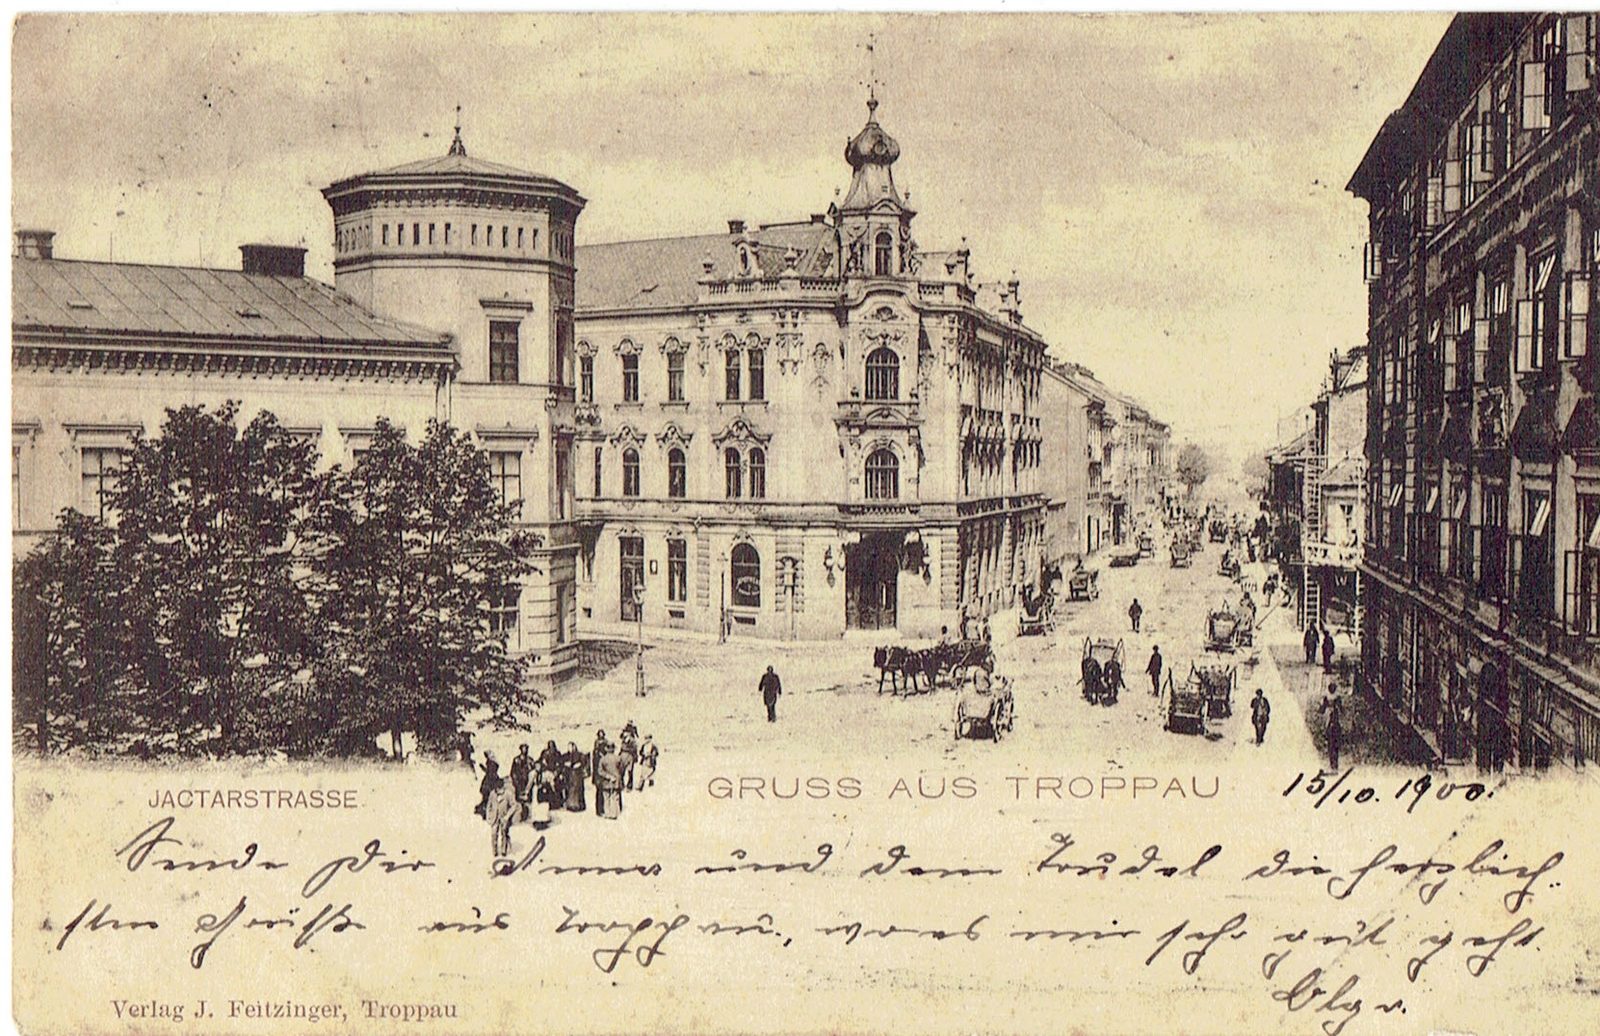 JACTARSTRASSE.
GRUSS AUS TROPPAU
15/10. 1900.
Sende Dir Anna und dem Trudel die herzlich-
sten Grüße aus Troppau, mir sehr gut geht.
Olga.
Verlag J. Feitzinger, Troppau